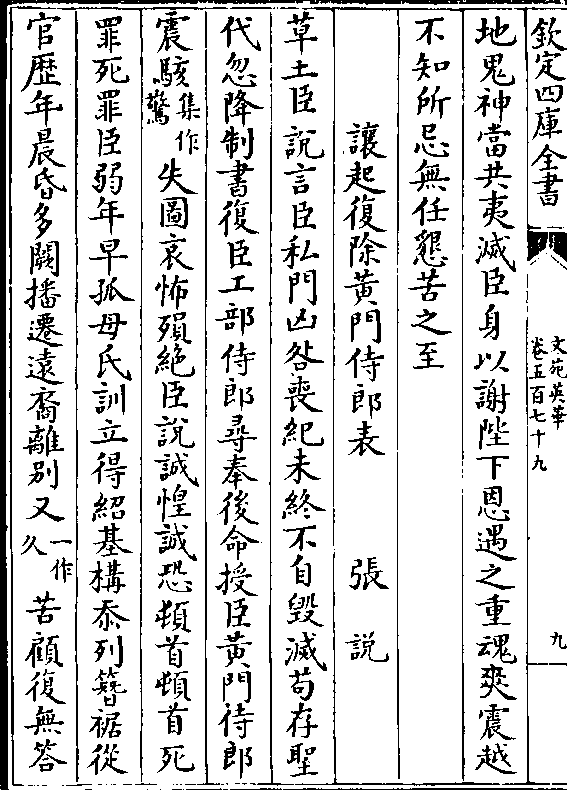 欽定四庫全書
文苑英華
卷五百七十九
九
地鬼神當共夷滅臣身以謝陛下恩遇之重魂爽震越
不知所忌無任懇苦之至
讓起復除黄門侍郎表 張說
草土臣說言臣私門凶咎喪紀未終不自毀滅苟存聖
代忽降制書復臣工部侍郎尋奉後命授臣黄門待郎
震駭集作驚失圖哀怖殞絶臣說誠惶誠恐頓首頓首死
罪死罪臣弱年早孤母氏訓立得紹基構忝列簪裾從
官歴年晨昏多闕播遷遠裔離别又一作久苦顧復無答